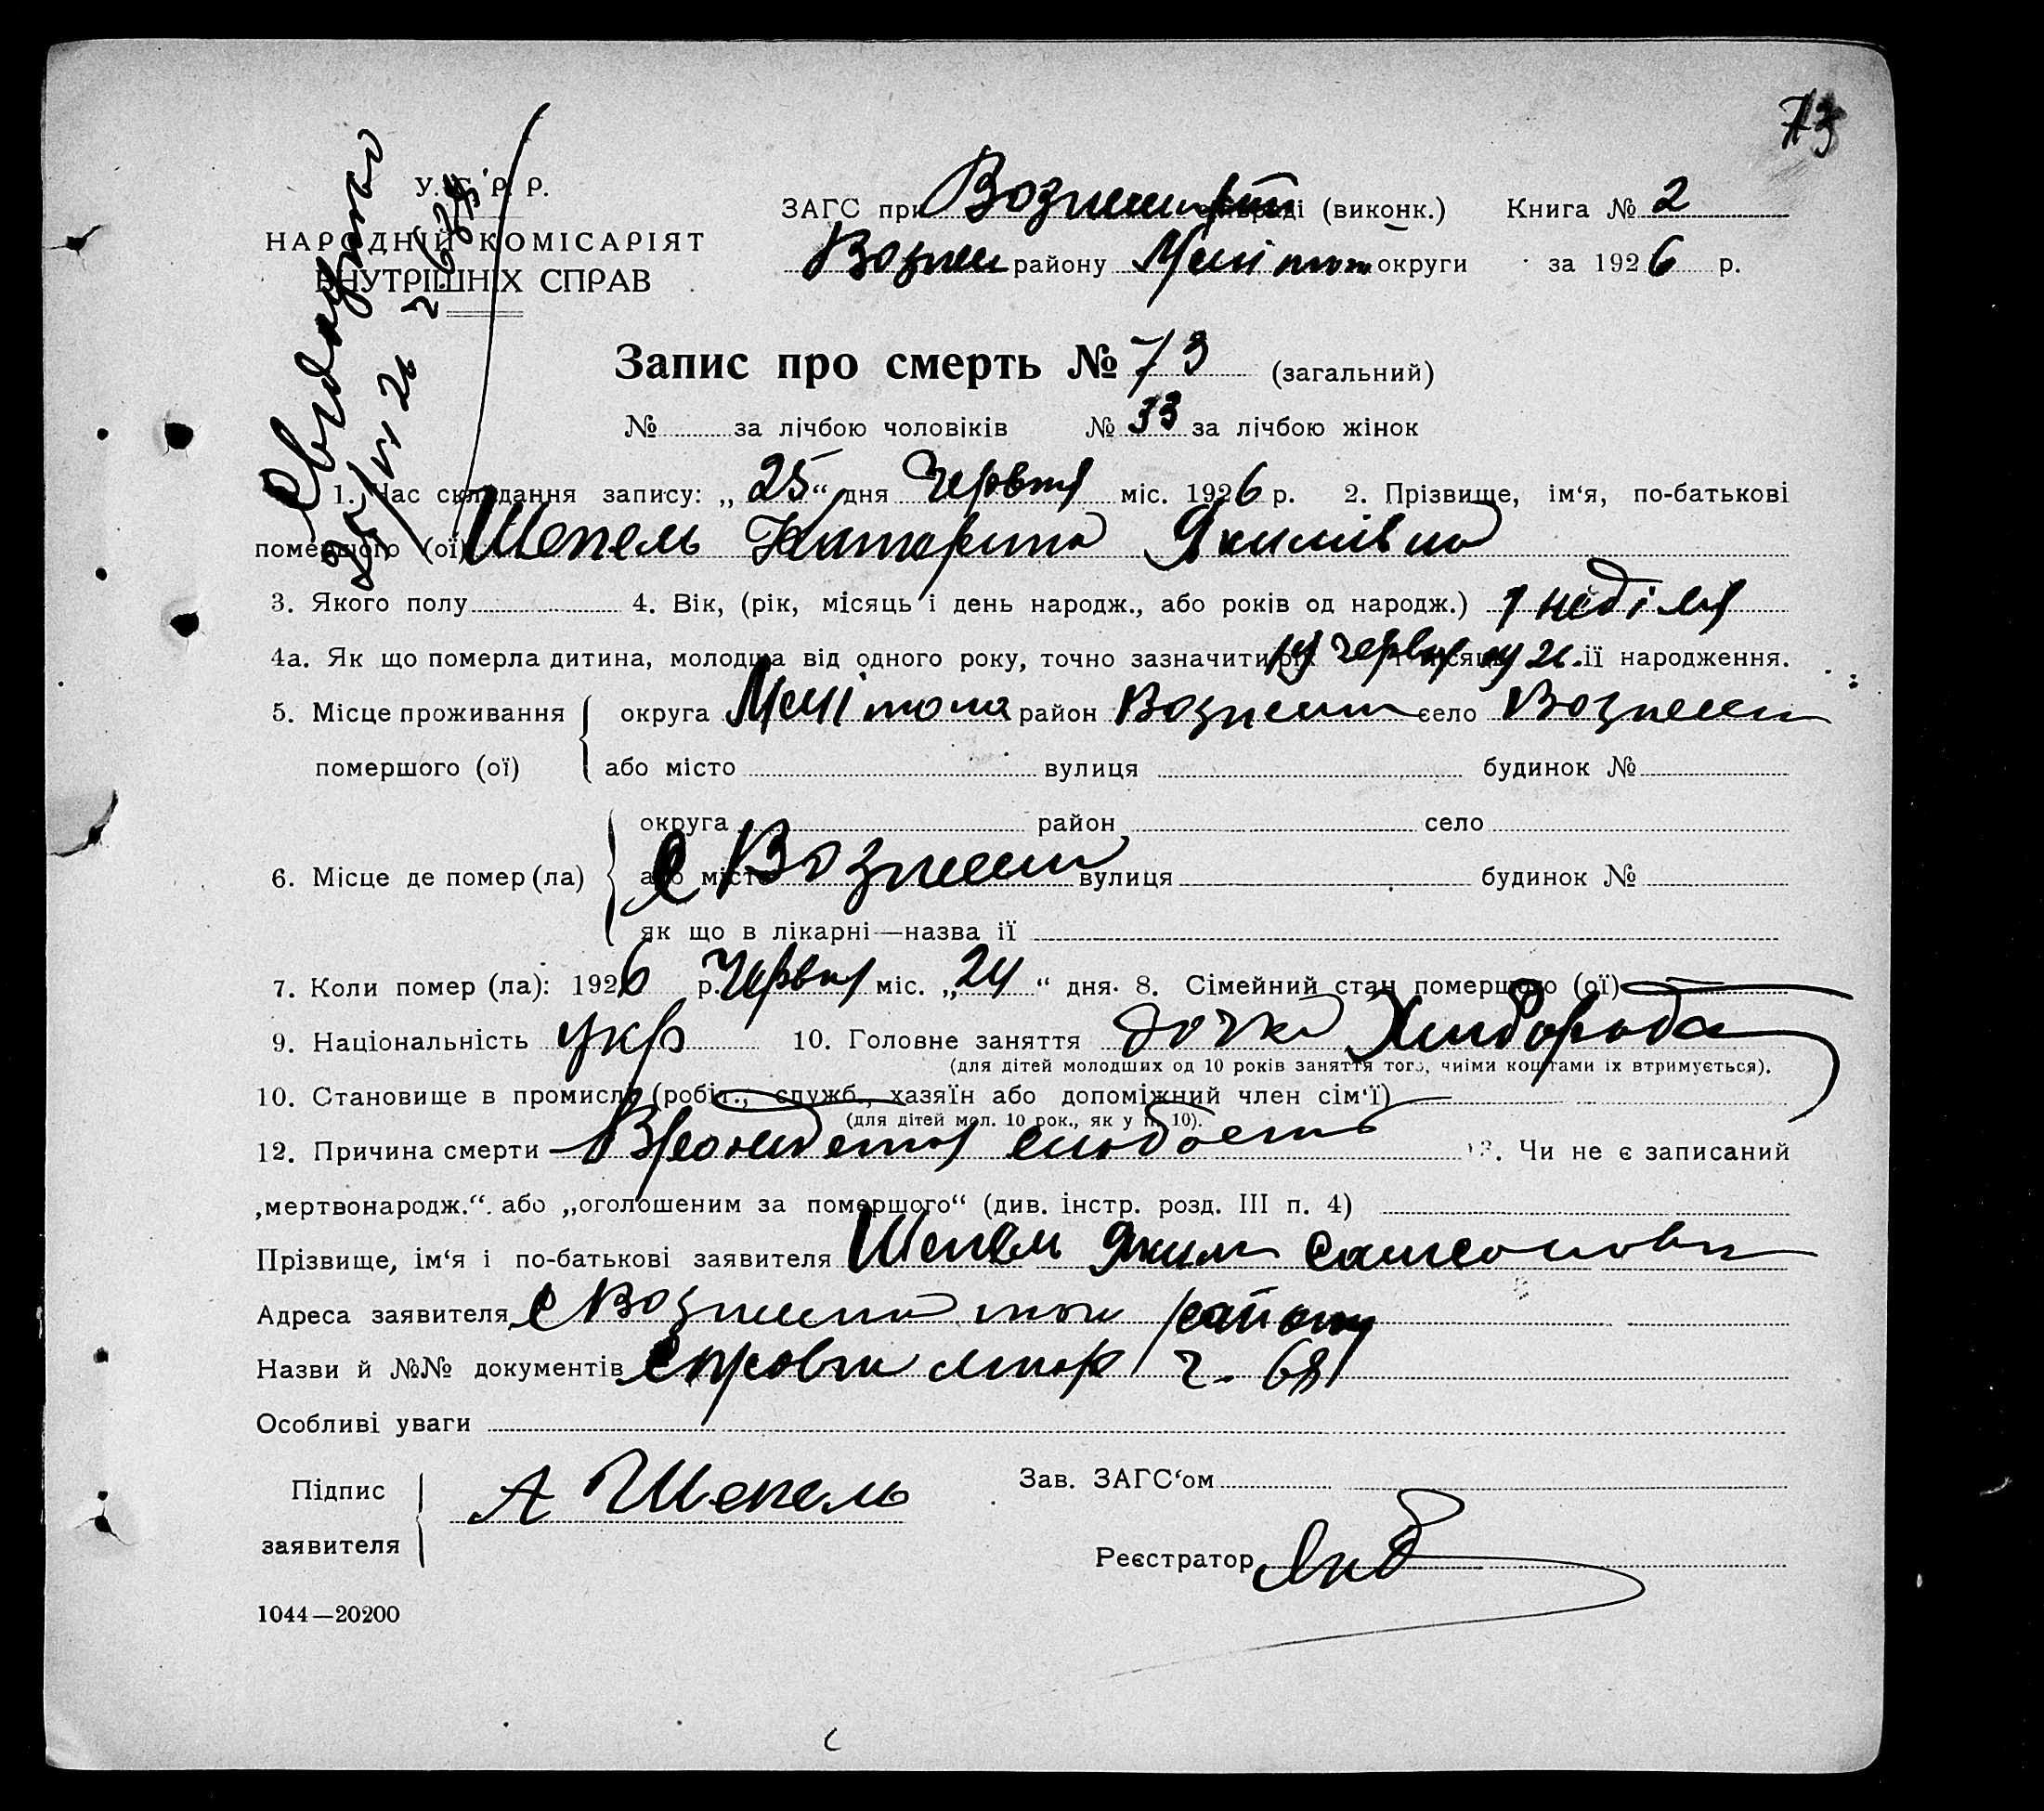 73
У.С.Р.Р.
НАРОДНІЙ КОМІСАРІЯТ
ВНУТРІШНІХ СПРАВ
ЗАГС при Вознесен (виконк.) Книга № 2
Вознес району Мелітоп округи за 1926 р.
Запис про смерть № 73 (загальний)
№ за лічбою чоловіків № 33 за лічбою жінок
1. Час складання запису: „25“ дня Червня міс. 1926 р. 2. Прізвище, ім‘я, по-батькові
помершого (ої) Шепель Катерина Якимівна
3. Якого полу 4. Вік, (рік, місяць і день народж., або років од народж.) 1 неділя
4а. Як що померла дитина, молодша від одного року, точно зазначити рік і місяць її народження. 19 червня 26.
5. Місце проживання помершого (ої) округа Мелітопол район Вознесен село Вознесен
або місто вулиця будинок №
6. Місце де помер (ла) округа район село
або місто с Вознесен вулиця будинок №
як що в лікарні—назва ії
7. Коли помер (ла): 1926 р. Червня міс. „24“ дня. 8. Сімейний стан помершого (ої)
9. Національність укр 10. Головне заняття дочка Хлібороба
(для дітей молодших од 10 років заняття того, чиіми коштами іх втримується).
10. Становище в промислі (робіт., служб., хазяїн або допоміжний член сім‘ї)
(для дітей мол. 10 рок., як у п. 10).
12. Причина смерти слабость 13. Чи не є записаний
„мертвонародж.“. або „оголошеним за помершого“ (див. інстр. розд. III п. 4)
Прізвище, ім‘я і по-батькові заявителя Шепель Яким Самсонови
Адреса заявителя с Вознесенка району
Назви й №№ документів Справка лікар ч.
Особливі уваги
Підпис заявителя А Шепель
Зав. ЗАГС‘ом
Реєстратор
1044—20200